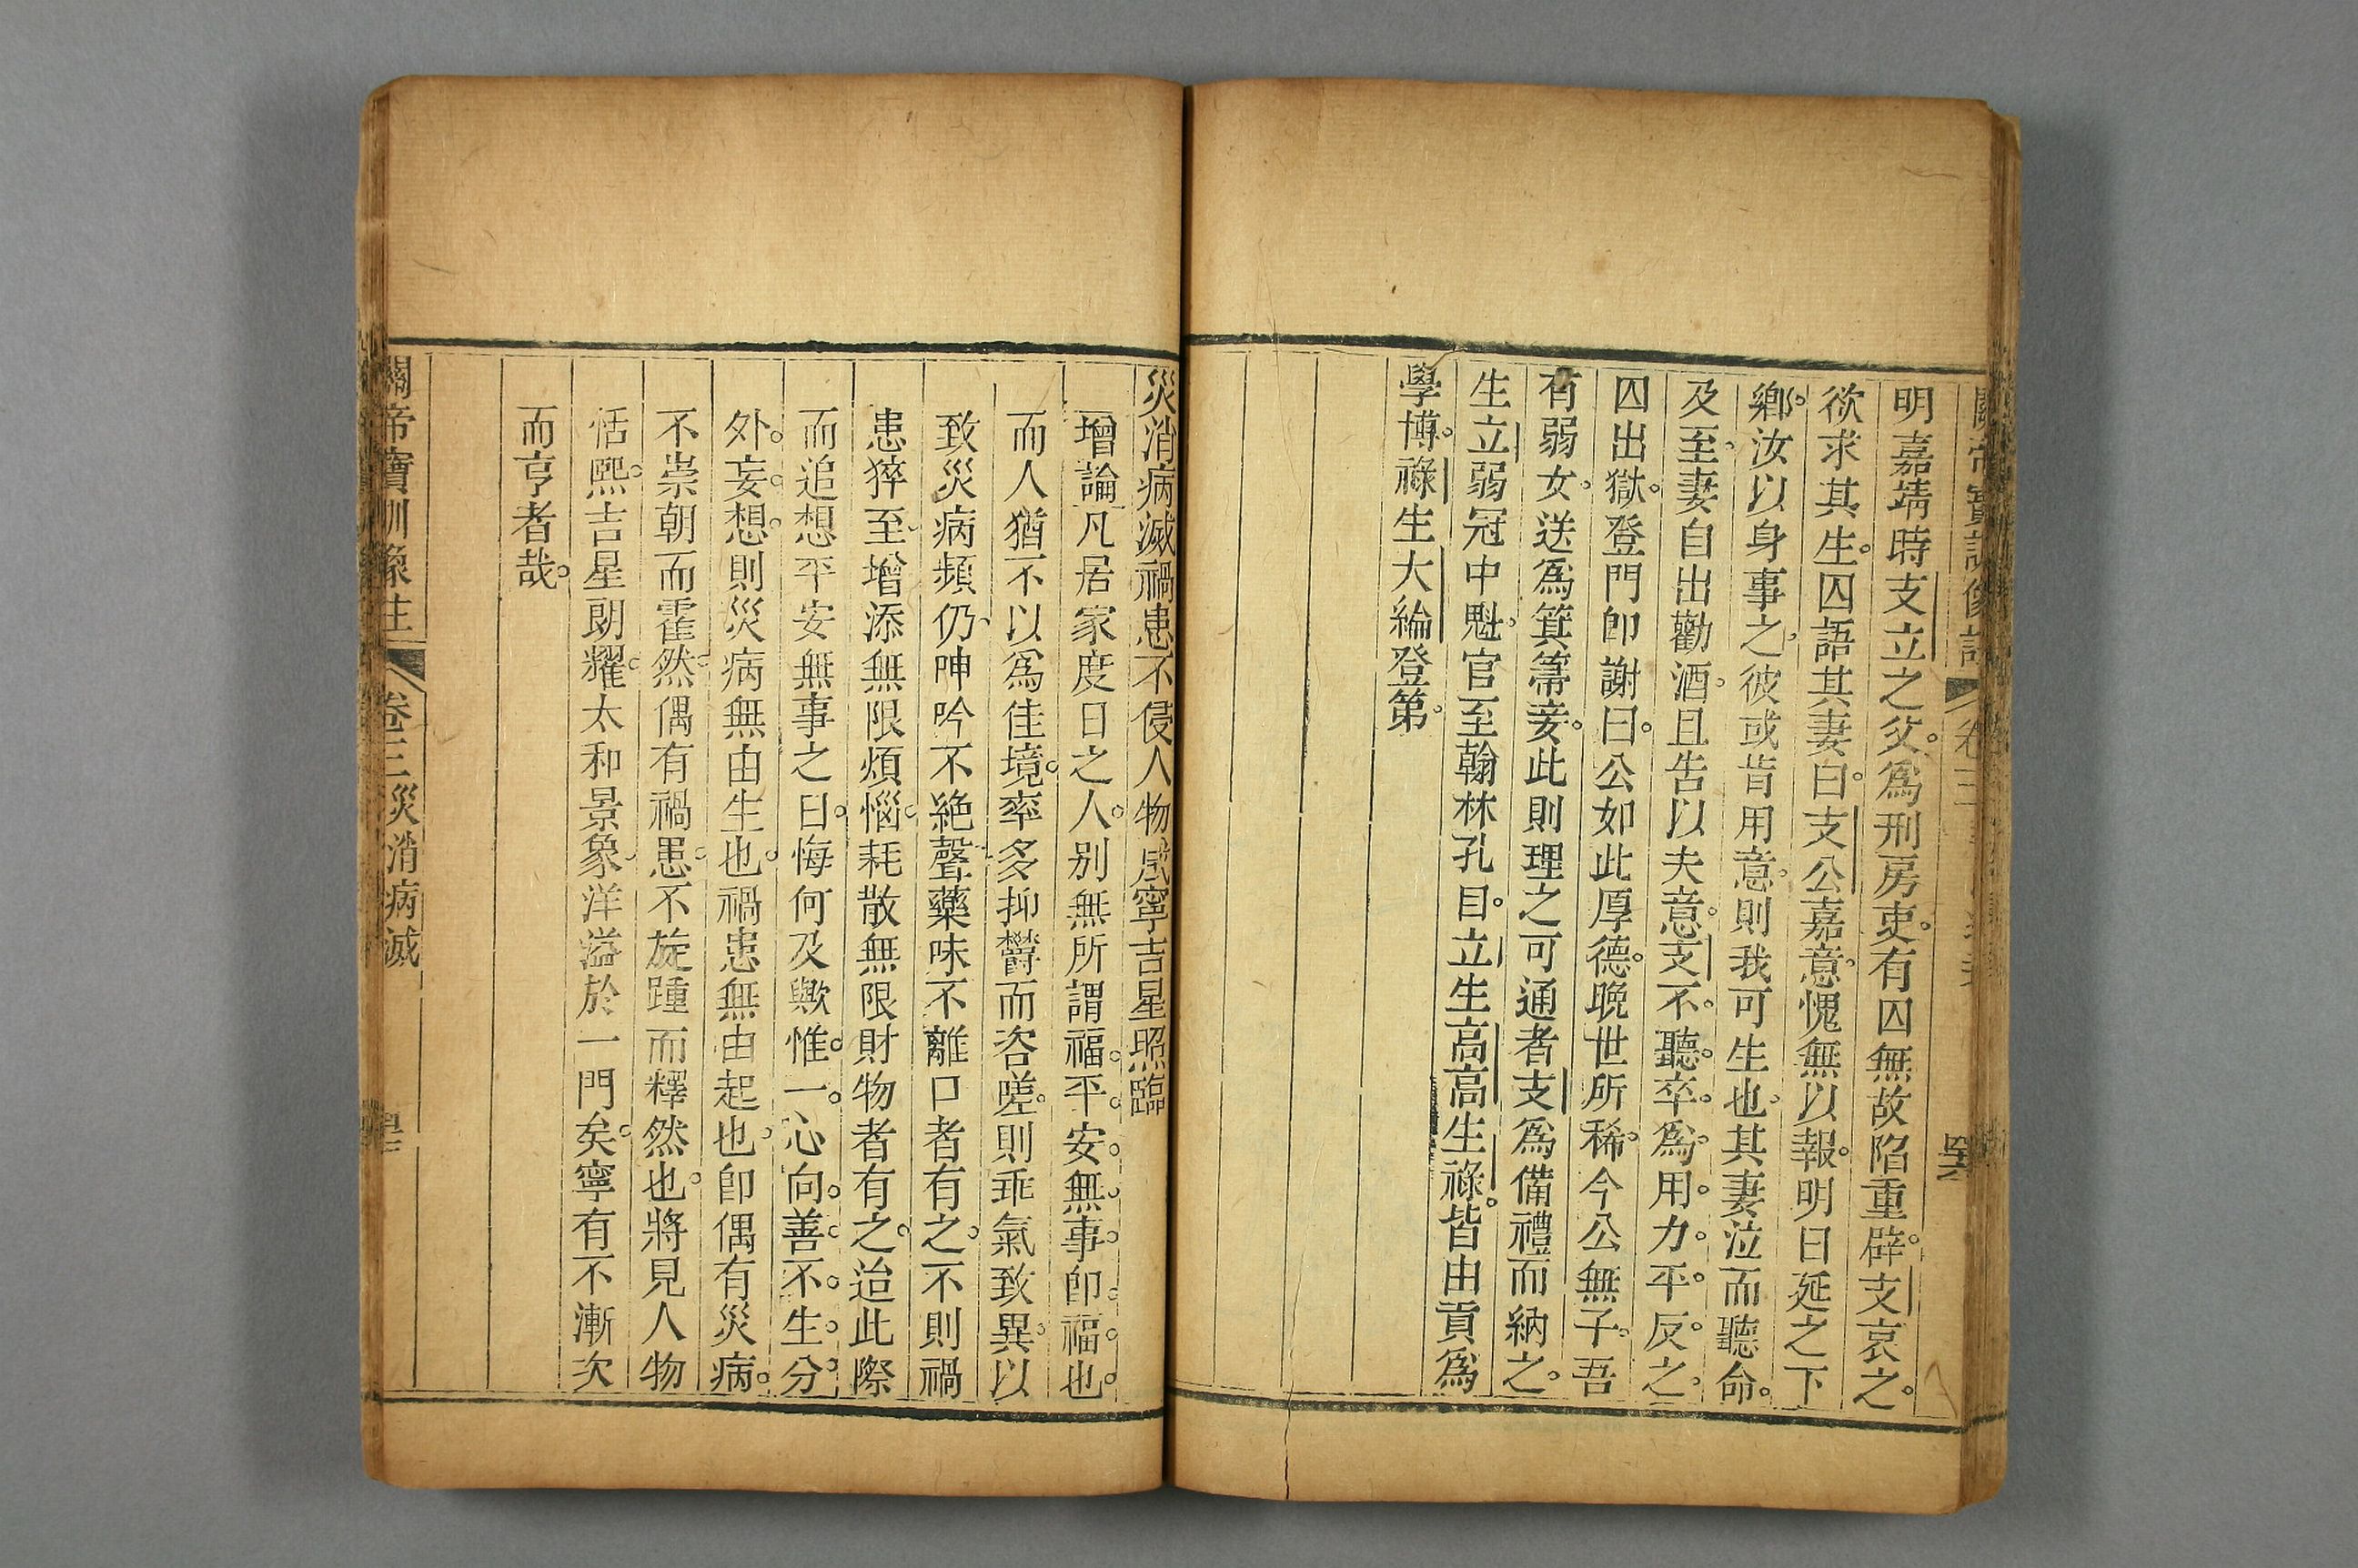 明嘉靖時支立之父。爲刑房吏。有囚無故陷重辟。支哀之。
欲求其生。囚語其妻曰。支公嘉意。愧無以報。明日延之下
鄕。汝以身事之。彼或肯用意。則我可生也。其妻泣而聽命。
及至。妻自出勸酒。且告以夫意。支不。聽。卒。爲。用。力。平。反。之。
囚出獄。登門卽謝曰。公如此厚德。晚世所稀。今公無子。吾
有弱女。送爲箕箒妾。此則理之可通者。支爲備禮而納之。
生立弱冠中魁。官至翰林孔目。立生高高生祿。皆由貢爲
學博。祿生大綸登第。
災消病滅禍患不侵人物咸寧吉星照臨
增論凡居家度日之人。别無所謂福。平。安。無。事。卽。福。也。
而人猶不以爲佳境。率多抑鬱而咨嗟。則乖氣致異。以
致災病頻仍。呻吟不絶聲。藥味不離口者有之。不則禍
患猝至。增添無限煩惱。耗散無限財物者有之。迨此際
而追想平安無事之日。悔何及歟。惟一。心向。善。不。生。分。
外。妄。想。則災病無由生也。禍患無由起也。卽偶有災病。
不崇朝而霍然。偶有禍患。不旋踵而釋然也。將見人物
恬熙。吉星朗耀。太和景象。洋溢於一門矣。寧有不漸次
而亨者哉。
關帝寶訓像註 卷三災消病滅